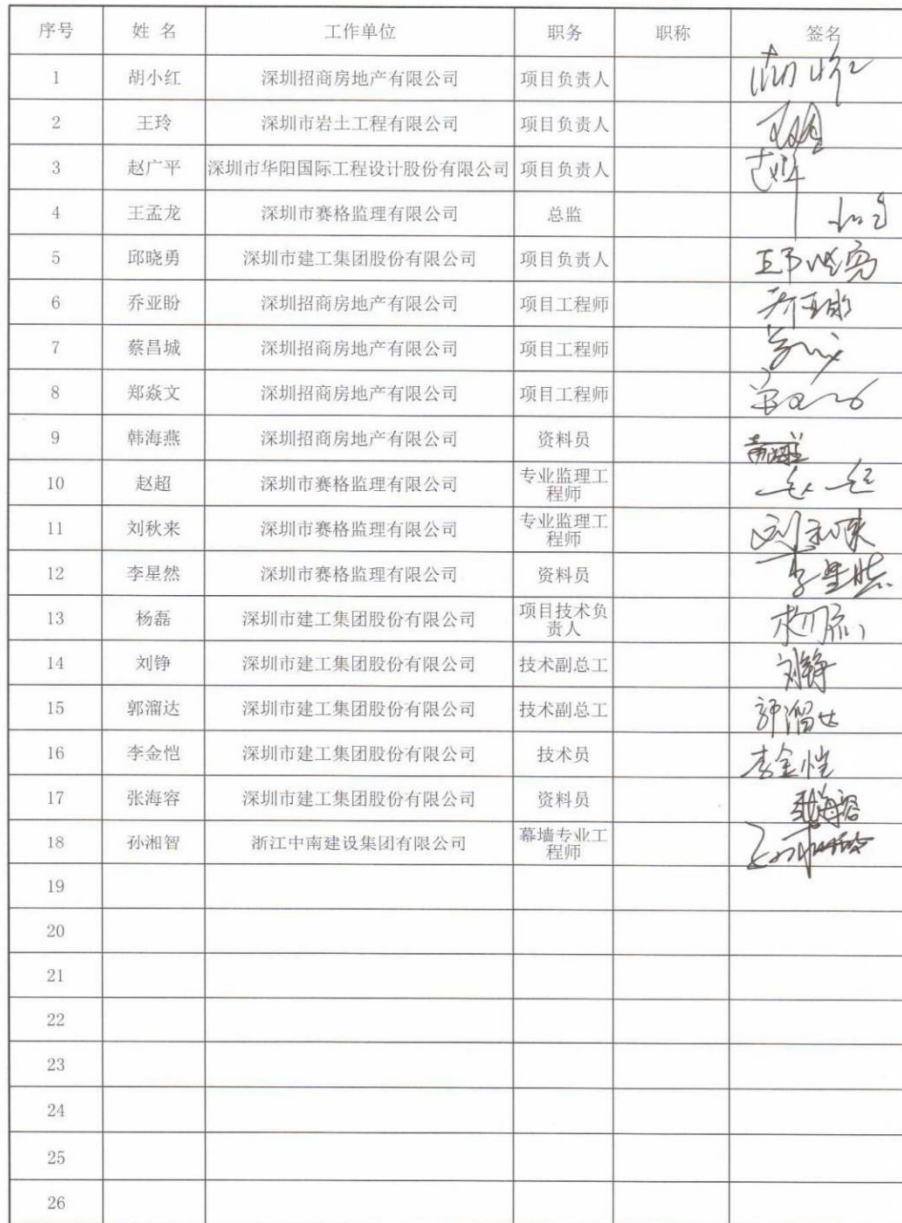 序号 姓 名 工作单位 职务 职称 签名
1 胡小红 深圳招商房地产有限公司 项目负责人
2 王玲 深圳市岩土工程有限公司 项目负责人
3 赵广平 深圳市华阳国际工程设计股份有限公司 项目负责人
4 王孟龙 深圳市赛格监理有限公司 总监
5 邱晓勇 深圳市建工集团股份有限公司 项目负责人 邱晓勇
6 乔亚盼 深圳招商房地产有限公司 项目工程师 乔亚盼
7 蔡昌城 深圳招商房地产有限公司 项目工程师
8 郑焱文 深圳招商房地产有限公司 项目工程师
9 韩海燕 深圳招商房地产有限公司 资料员
10 赵超 深圳市赛格监理有限公司 专业监理工
程师
11 刘秋来 深圳市赛格监理有限公司 专业监理工
程师 刘秋来
12 李星然 深圳市赛格监理有限公司 资料员 李星然
13 杨磊 深圳市建工集团股份有限公司 项目技术负
责人
14 刘铮 深圳市建工集团股份有限公司 技术副总工 刘铮
15 郭溜达 深圳市建工集团股份有限公司 技术副总工 郭溜达
16 李金恺 深圳市建工集团股份有限公司 技术员 李金恺
17 张海容 深圳市建工集团股份有限公司 资料员 张海容
18 孙湘智 浙江中南建设集团有限公司 幕墙专业工
程师
19
20
21
22
23
24
25
26